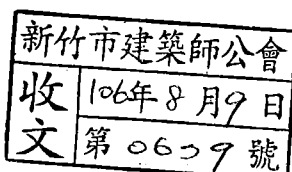 新竹市建築師公會
收文
106年8月9日
第0639號